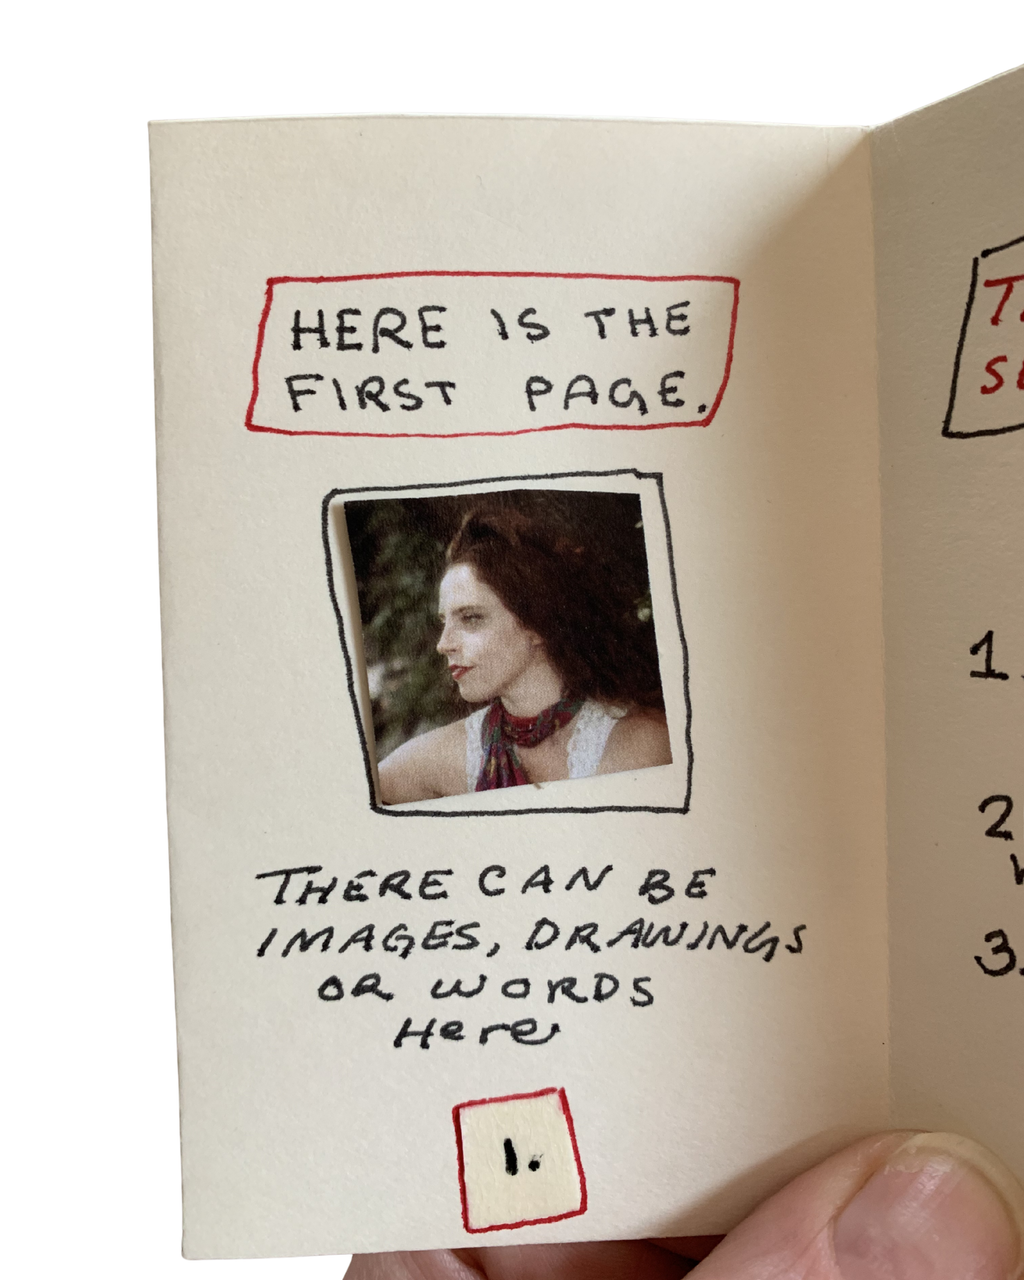 HERE IS THE
FIRST PAGE.
THERE CAN BE
IMAGES, DRAWINGS
OR WORDS
Here
1.
1.
2
3.